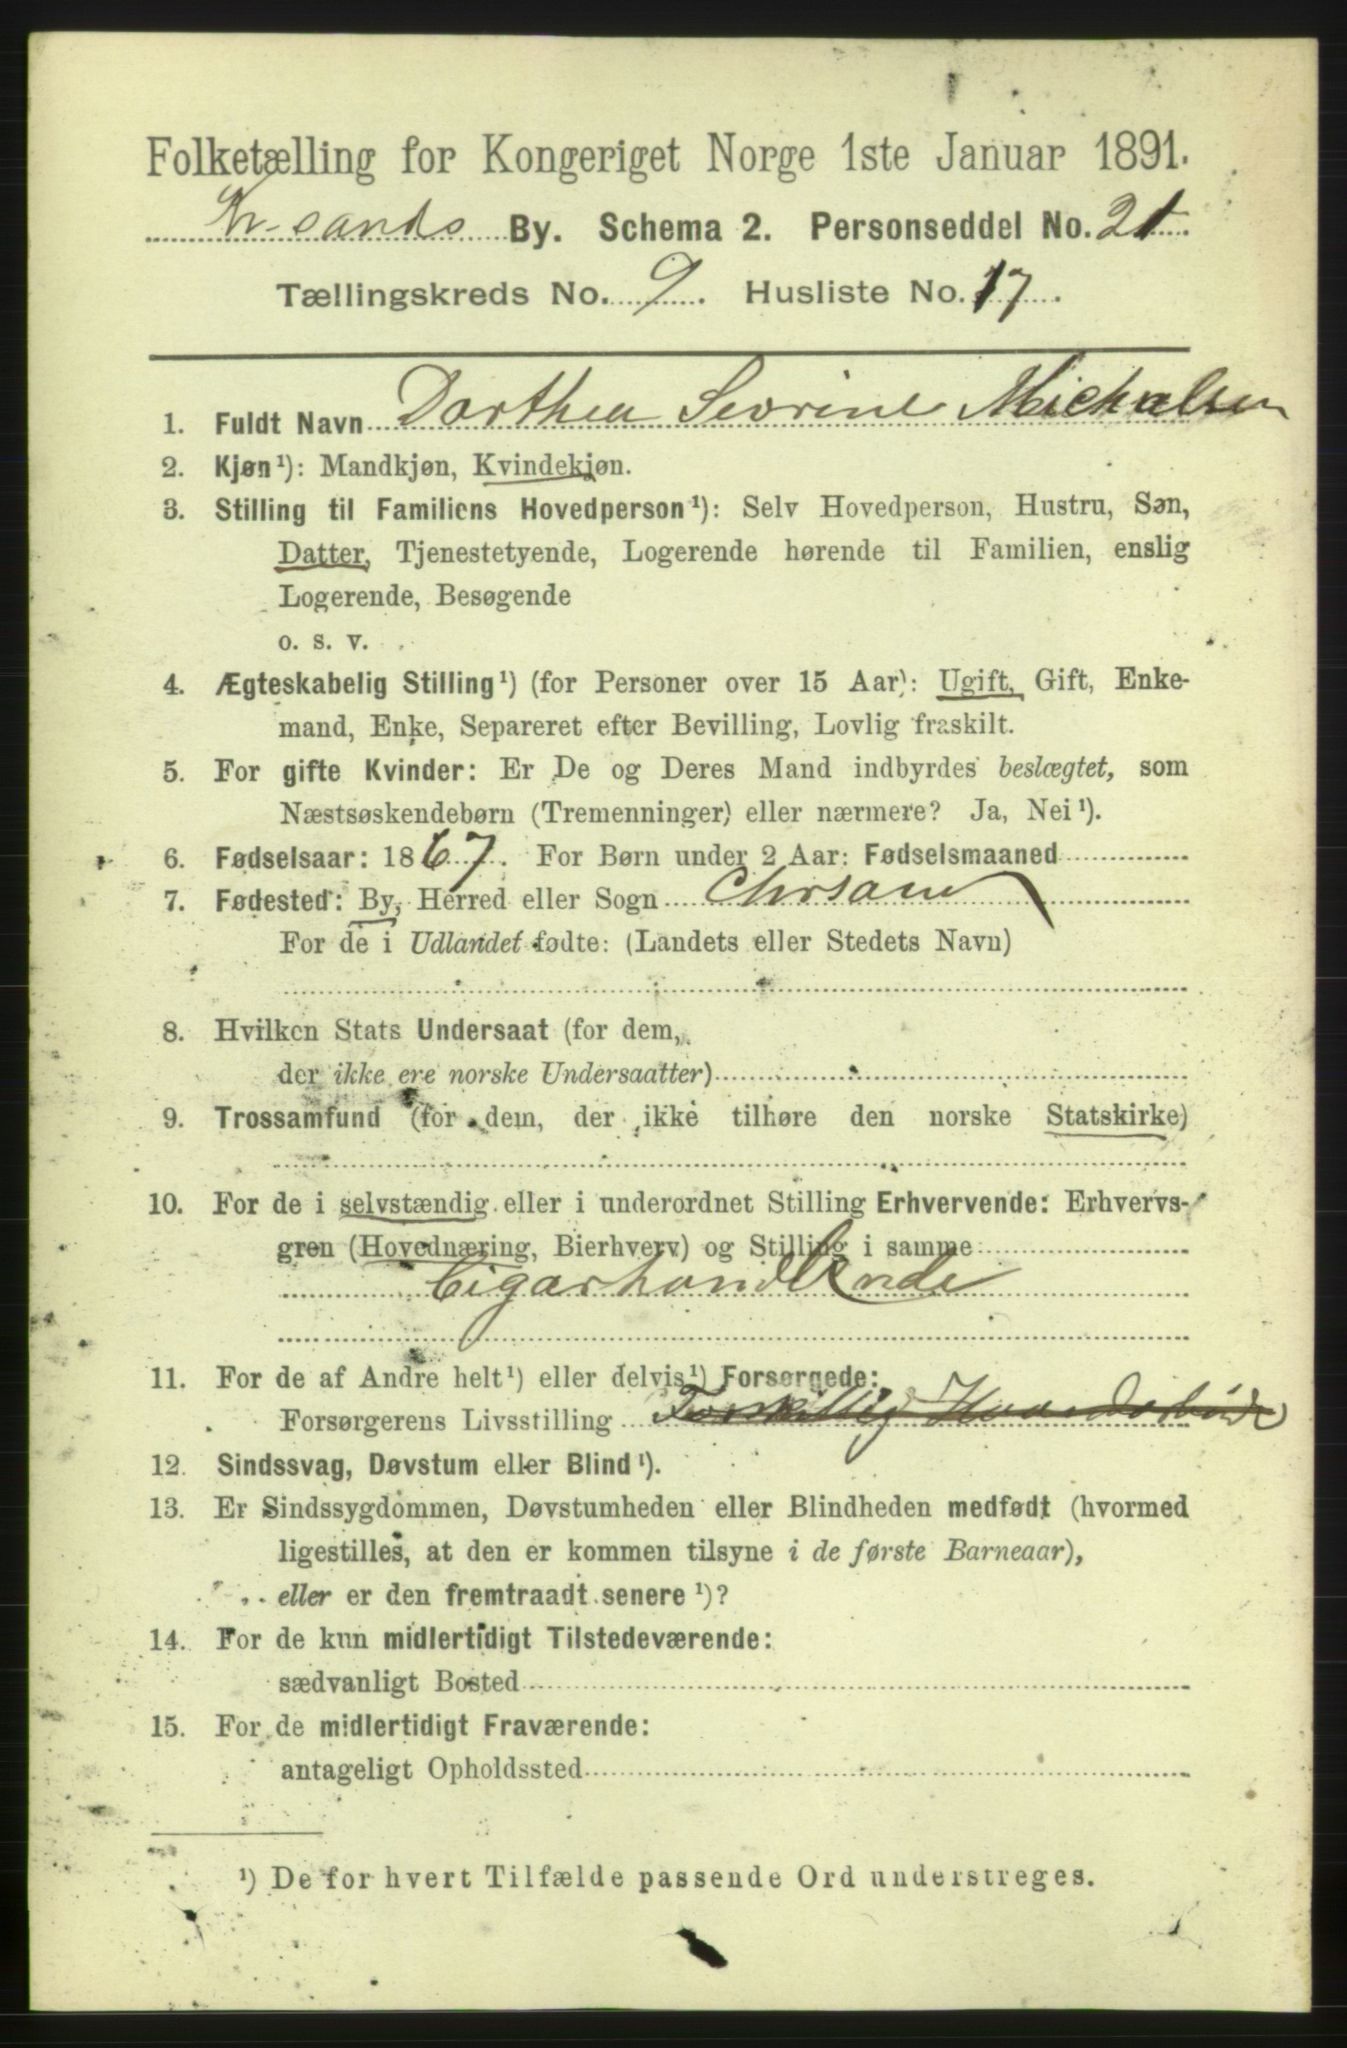 Folketælling for Kongeriget Norge 1ste Januar 1891.
Kr-sands By. Schema 2. Personseddel No. 21.
Tællingskreds No. 9. Husliste No. 17.
1. Fuldt Navn Dorthea Sevrine Michalsen
2. Kjøn¹): Mandkjøn, Kvindekjøn.
3. Stilling til Familiens Hovedperson¹): Selv Hovedperson, Hustru, Søn,
Datter, Tjenestetyende, Logerende hørende til Familien, enslig
Logerende, Besøgende
o. s. v.
4. Ægteskabelig Stilling¹) (for Personer over 15 Aar): Ugift, Gift, Enke-
mand, Enke, Separeret efter Bevilling, Lovlig fraskilt.
5. For gifte Kvinder: Er De og Deres Mand indbyrdes beslægtet, som
Næstsøskendebørn (Tremenninger) eller nærmere? Ja, Nei¹).
6. Fødselsaar: 1867. For Børn under 2 Aar: Fødselsmaaned
7. Fødested: By, Herred eller Sogn Chrsan
For de i Udlandet fødte: (Landets eller Stedets Navn)
8. Hvilken Stats Undersaat (for dem,
der ikke ere norske Undersaatter)
9. Trossamfund (for dem, der ikke tilhøre den norske Statskirke)
10. For de i selvstændig eller i underordnet Stilling Erhvervende: Erhvervs-
gren (Hovednæring, Bierhverv) og Stilling i samme
Cigarhandlende
11. For de af Andre helt¹) eller delvis¹) Forsørgede:
Forsørgerens Livsstilling
12. Sindssvag, Døvstum eller Blind¹).
13. Er Sindssygdommen, Døvstumheden eller Blindheden medfødt (hvormed
ligestilles, at den er kommen tilsyne i de første Barneaar),
eller er den fremtraadt senere¹)?
14. For de kun midlertidigt Tilstedeværende:
sædvanligt Bosted
15. For de midlertidigt Fraværende:
antageligt Opholdssted
¹) De for hvert Tilfælde passende Ord understreges.